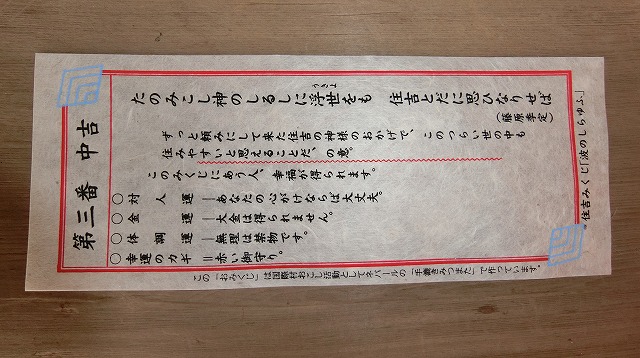 住吉みくじ「波のしらゆふ」
たのみこし神のしるしに浮世をも　住吉とだに思ひなりせば
うきよ
（藤原季定）
ずっと頼みにして来た住吉の神様のおかげで、このつらい世の中も
住みやすいと思えることだ、の意。
このみくじにあう人、幸福が得られます。
第三番　中吉
〇対人運｜あなたの心がけならば大丈夫。
〇金運｜大金は得られません。
〇体調運｜無理は禁物です。
〇幸運のカギ＝赤い御守り。
この「おみくじ」は国際村おこし活動としてネパールの「手漉きみつまた」で作っています。